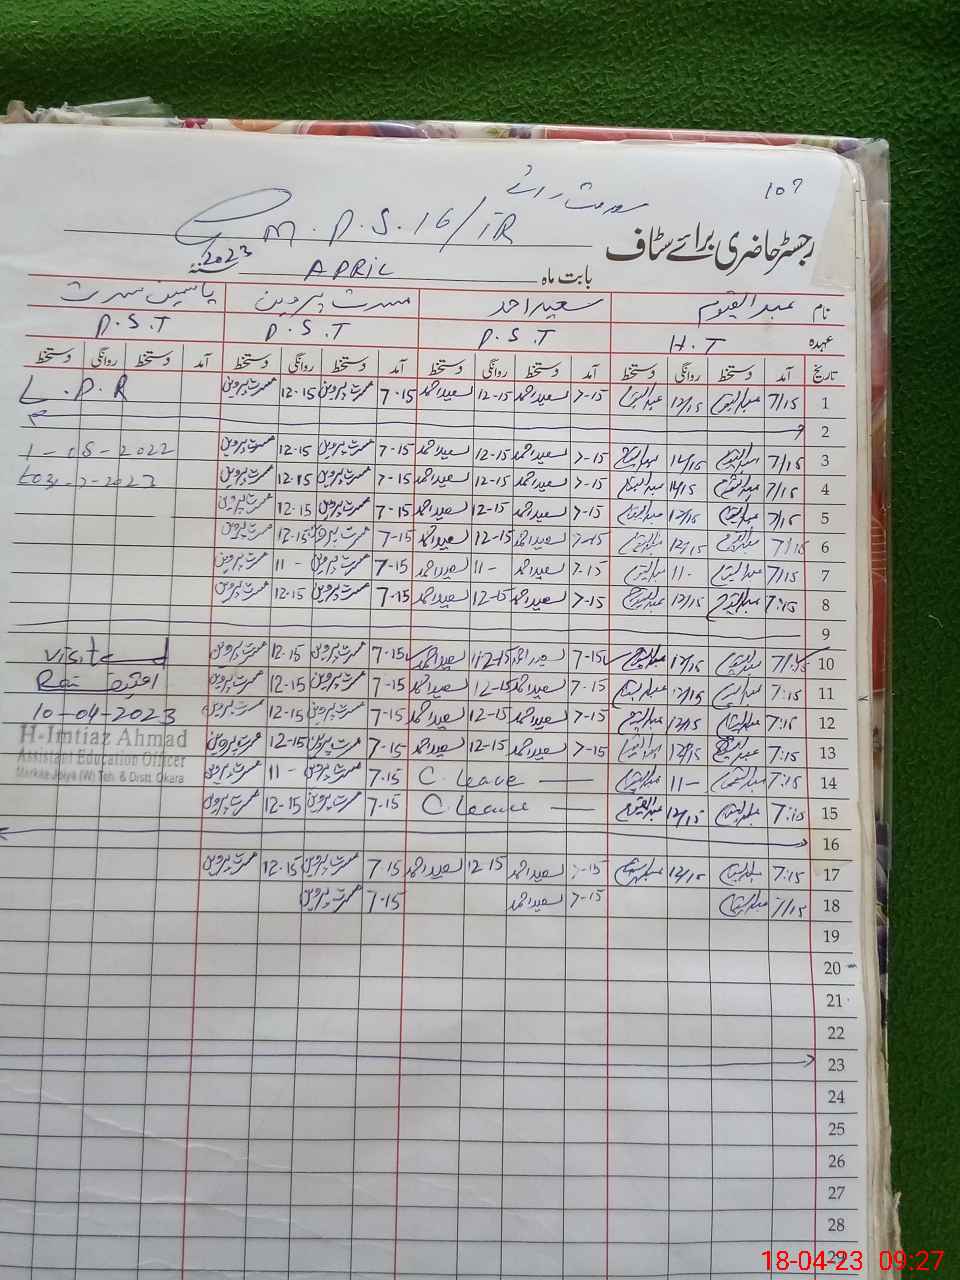 107
G M.P.S. 16/1R
رجسٹر حاضری برائے سٹاف
بابت ماہ APRIL 2023
نام عبدالقیوم سعید احمد مسرت پروین یاسمین مسرت
عہدہ H.T P.S.T P.S.T P.S.T
تاریخ آمد دستخط روانگی دستخط آمد دستخط روانگی دستخط آمد دستخط روانگی دستخط آمد دستخط روانگی دستخط
1 7/15 12/15 7-15 سعید احمد 12-15 سعید احمد 7-15 مسرت پروین 12.15 مسرت پروین L.P.R
2
3 7/15 12/15 7-15 سعید احمد 12-15 سعید احمد 7-15 مسرت پروین 12.15 مسرت پروین 2022
4 7/15 12/15 7-15 سعید احمد 12-15 سعید احمد 7-15 مسرت پروین 12.15 مسرت پروین 2023
5 7/15 12/15 7-15 سعید احمد 12-15 سعید احمد 7-15 مسرت پروین 12.15 مسرت پروین
6 7/15 12/15 7-15 سعید احمد 12-15 سعید احمد 7-15 مسرت پروین 12.15 مسرت پروین
7 7/15 11- 7-15 سعید احمد 11- سعید احمد 7-15 مسرت پروین 11- مسرت پروین
8 7:15 12/15 7-15 سعید احمد 12-15 سعید احمد 7-15 مسرت پروین 12.15 مسرت پروین
9
10 7/15 12/15 7-15 سعید احمد 12-15 سعید احمد 7-15 مسرت پروین 12.15 مسرت پروین visited
11 7:15 12/15 7-15 سعید احمد 12-15 سعید احمد 7-15 مسرت پروین 12-15 مسرت پروین
12 7:15 12/15 7-15 سعید احمد 12-15 سعید احمد 7-15 مسرت پروین 12-15 مسرت پروین 10-04-2023
13 7:15 12/15 7-15 سعید احمد 12-15 سعید احمد 7-15 مسرت پروین 12-15 مسرت پروین
H-Imtiaz Ahmad
Assistant Education Officer
Markaz Joiya (W) Teh. & Distt. Okara
14 7:15 11- C. Leave — 7.15 مسرت پروین 11- مسرت پروین
15 7:15 12/15 C. Leave — 7-15 مسرت پروین 12-15 مسرت پروین
16
17 7:15 12/15 7-15 سعید احمد 12-15 سعید احمد 7-15 مسرت پروین 12.15 مسرت پروین
18 7/15 7-15 سعید احمد 7-15 مسرت پروین
19
20
21
22
23
24
25
26
27
28
29
18-04-23 09:27